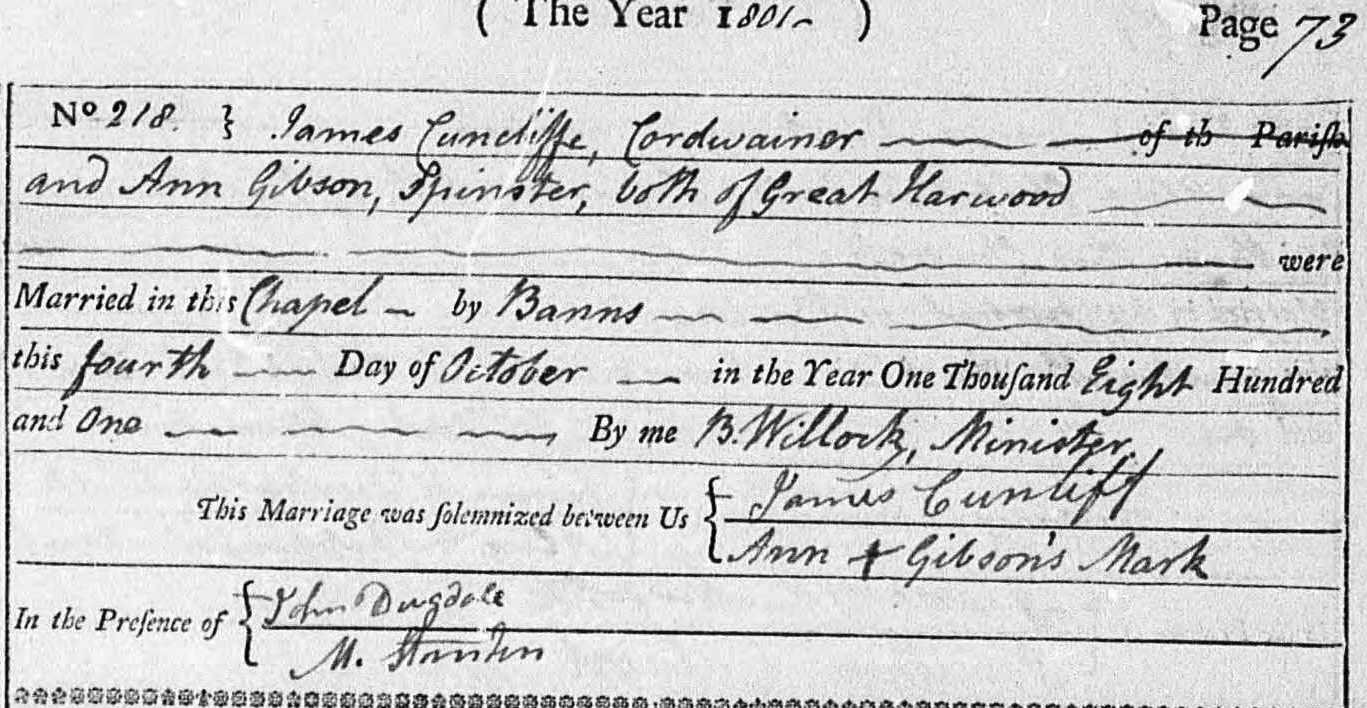 ( The Year 1801 ) Page 73
No 218. } James Cuncliffe, Cordwainer of th Pariſh
and Ann Gibson, Spinster, both of Great Harwood
were
Married in this Chapel by Banns
this fourth Day of October in the Year One Thouſand Eight Hundred
and One By me B. Willock, Minister.
This Marriage was ſolemnized between Us { James Cunliff
Ann + Gibson's Mark
In the Preſence of { John Dugdale
M. Stanten